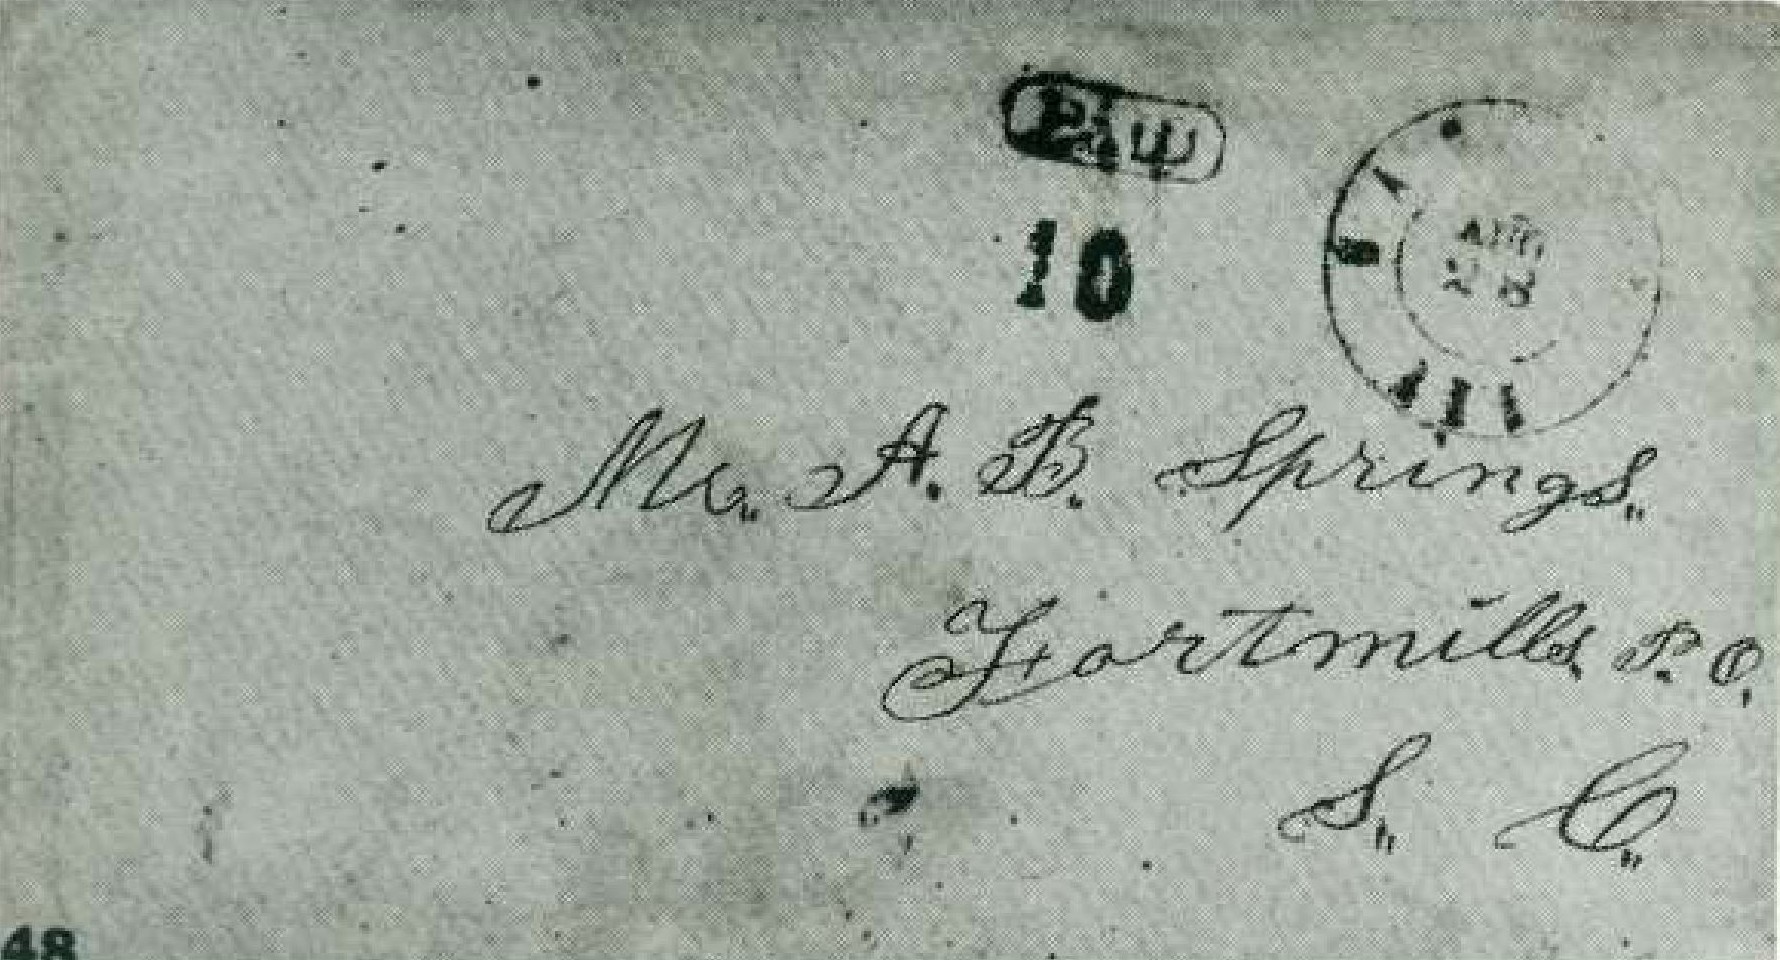 PAID
10
AUG
Mr. A. B. Springs.
Fortmills P. O.
S. C.
48